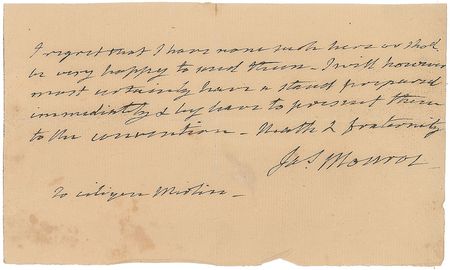 I regret that I have none such here or shod.
be very happy to send them – I will however
most certainly have a stand prepared
immediately & beg leave to present them
to the convention – Health & fraternity
Jas. Monroe
To citizen